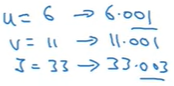 u = 6 → 6.001
v = 11 → 11.001
J = 33 → 33.003